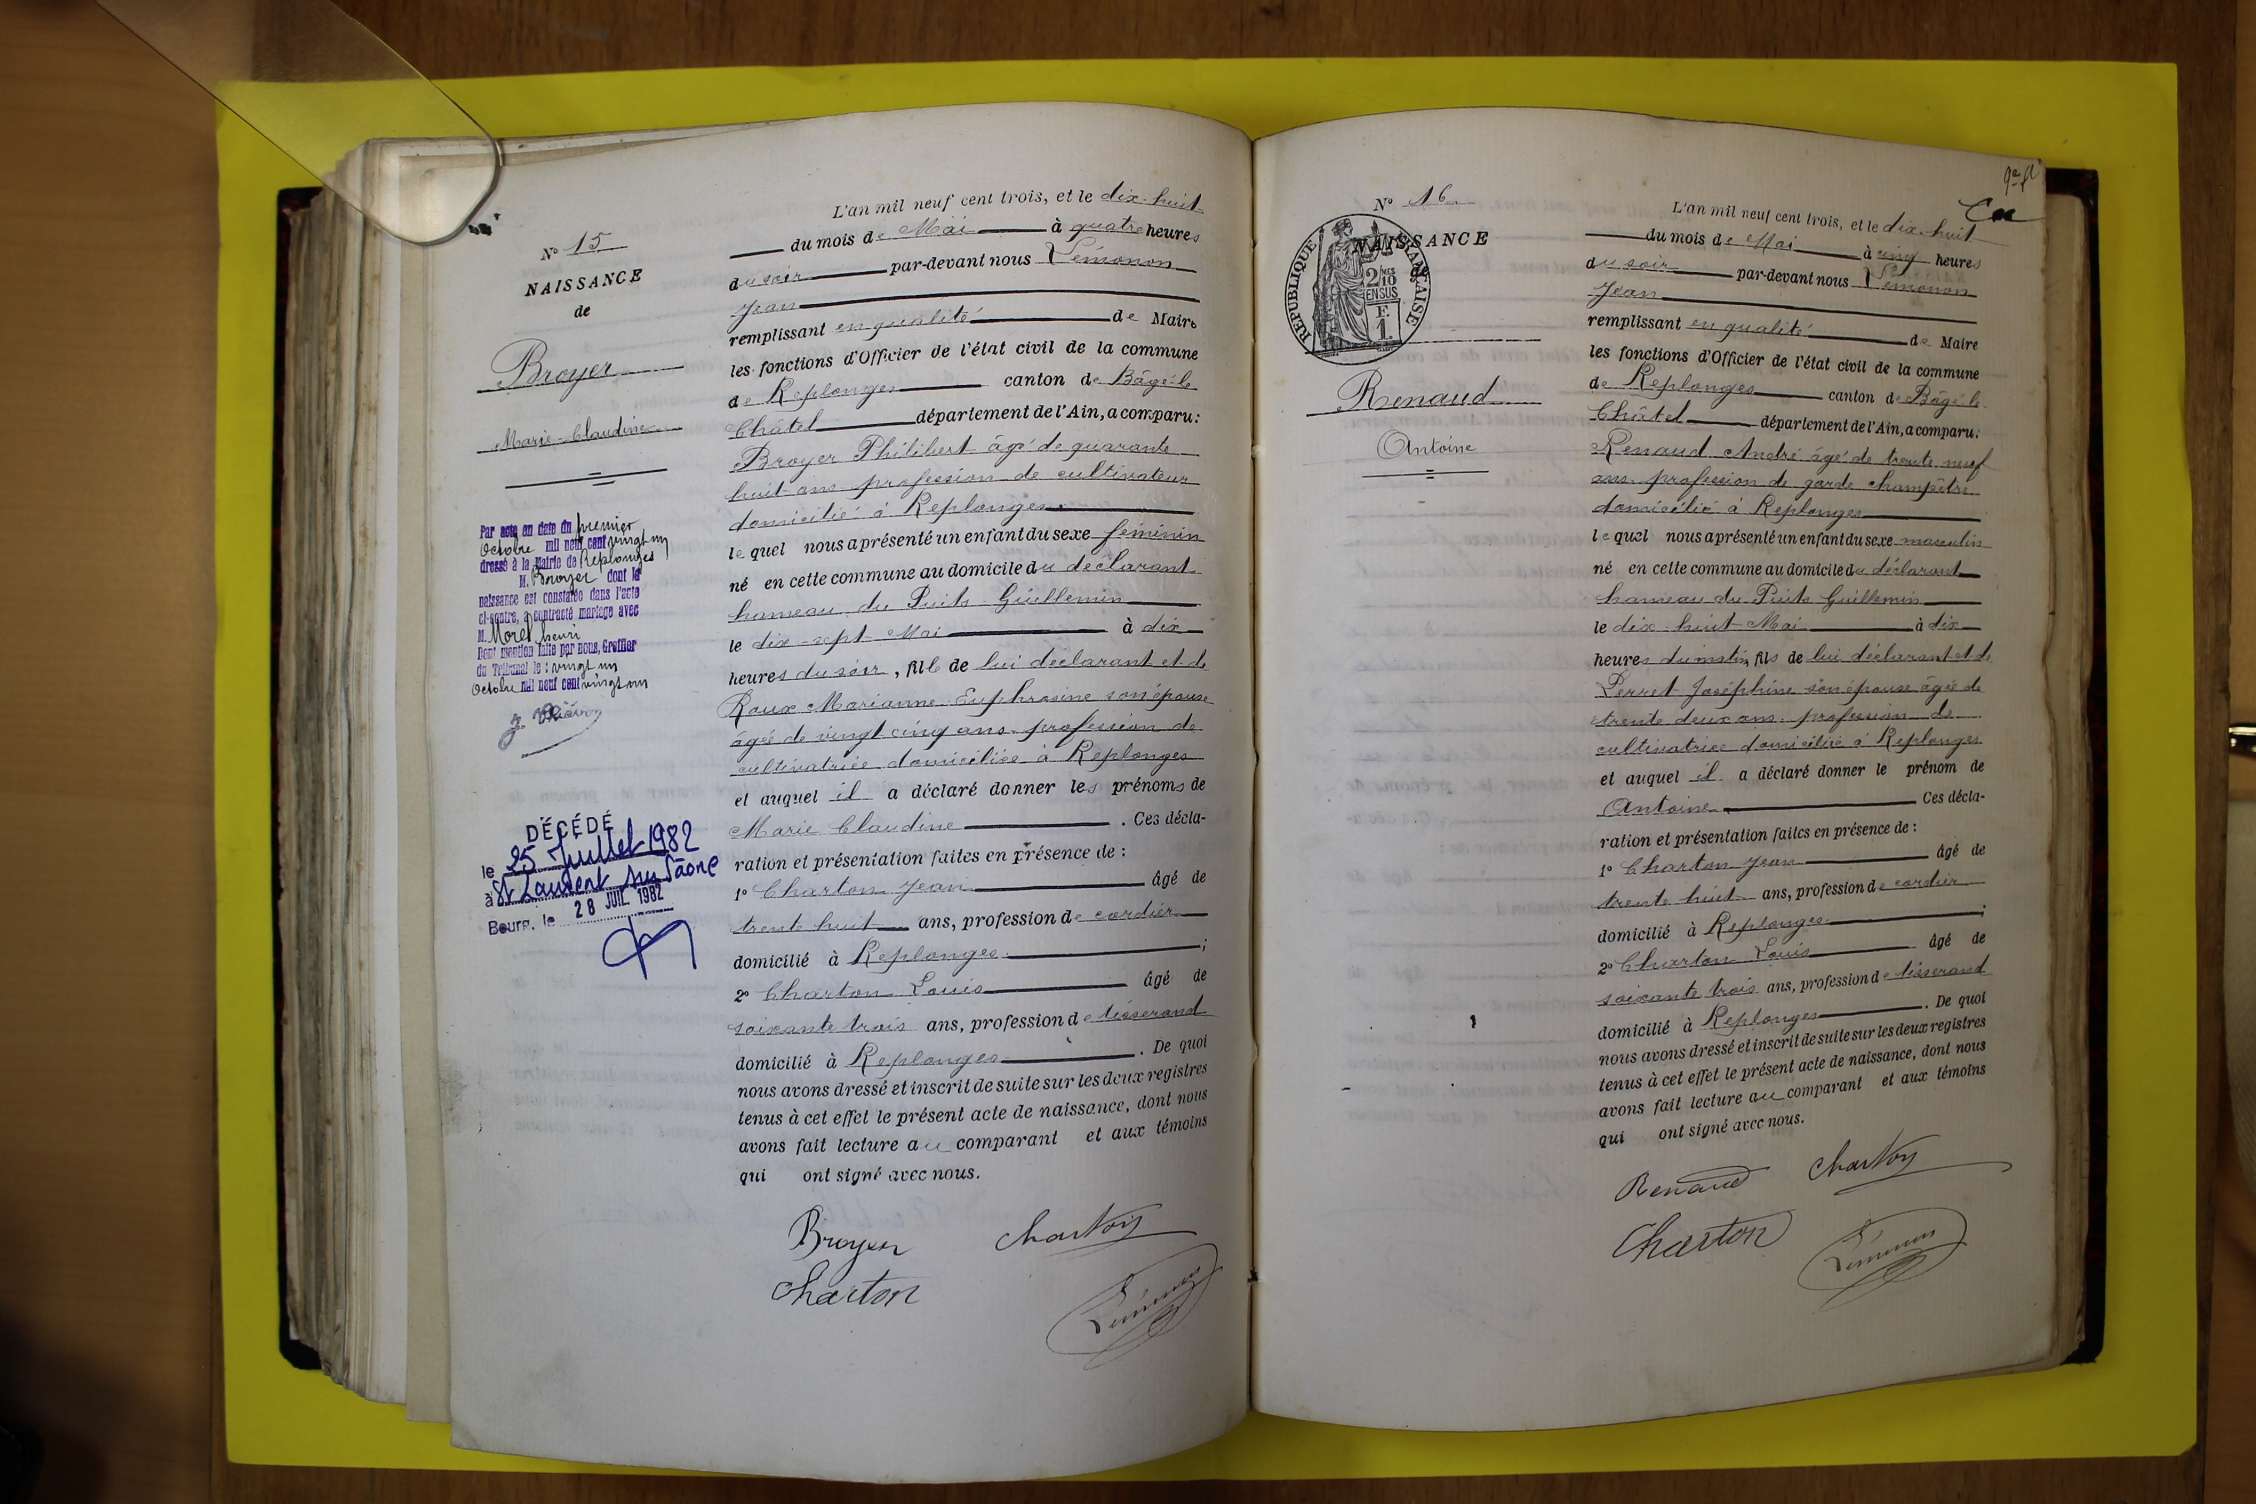 N° 15
NAISSANCE
de
Broyer
Marie-Claudine
Par acte en date du premier
Octobre mil neuf cent vingt un
dressé à la Mairie de Replonges
M. Broyer dont la
naissance est constatée dans l'acte
ci-contre, a contracté mariage avec
M. Morel henri
Dont mention faite par nous, Greffier
du Tribunal le : vingt un
Octobre mil neuf cent vingt un
DÉCÉDÉ
le 25 Juillet 1982
à St Laurent sur Saône
Bourg, le 28 JUIL 1982
L'an mil neuf cent trois, et le dix-huit
du mois de Mai à quatre heures
du soir par-devant nous Lémonon
Jean
remplissant en qualité de Maire
les fonctions d'Officier de l'état civil de la commune
de Replonges canton de Bâgé-le
Châtel département de l'Ain, a comparu:
Broyer Philibert âgé de quarante
huit ans profession de cultivateur
domicilié à Replonges
lequel nous a présenté un enfant du sexe féminin
né en cette commune au domicile du déclarant
hameau du Puits Guillemin
le dix-sept Mai à dix
heures du soir, fille de lui déclarant et de
Roux Marianne Euphrosine son épouse
âgée de vingt cinq ans profession de
cultivatrice domiciliée à Replonges
et auquel il a déclaré donner les prénoms de
Marie Claudine . Ces décla-
ration et présentation faites en présence de :
1° Charton Jean âgé de
trente huit ans, profession de cordier
domicilié à Replonges ;
2° Charton Louis âgé de
soixante trois ans, profession de tisserand
domicilié à Replonges . De quoi
nous avons dressé et inscrit de suite sur les deux registres
tenus à cet effet le présent acte de naissance, dont nous
avons fait lecture au comparant et aux témoins
qui ont signé avec nous.
Broyer Charton
Charton Lémonon
9e fl
N° 16
NAISSANCE
de
RÉPUBLIQUE FRANÇAISE
2 10
EN SUS
F.
1.
Renaud
Antoine
L'an mil neuf cent trois, et le dix-huit
du mois de Mai à cinq heures
du soir par-devant nous Lémonon
Jean
remplissant en qualité de Maire
les fonctions d'Officier de l'état civil de la commune
de Replonges canton de Bâgé-le
Châtel département de l'Ain, a comparu:
Renaud André âgé de trente neuf
ans profession de garde champêtre
domicilié à Replonges
lequel nous a présenté un enfant du sexe masculin
né en cette commune au domicile du déclarant
hameau du Puits Guillemin
le dix-huit Mai à dix
heures du matin, fils de lui déclarant et de
Perret Joséphine son épouse âgée de
trente deux ans profession de
cultivatrice domiciliée à Replonges
et auquel il a déclaré donner le prénom de
Antoine Ces décla-
ration et présentation faites en présence de :
1° Charton Jean âgé de
trente huit ans, profession de cordier
domicilié à Replonges ;
2° Charton Louis âgé de
soixante trois ans, profession de tisserand
domicilié à Replonges . De quoi
nous avons dressé et inscrit de suite sur les deux registres
tenus à cet effet le présent acte de naissance, dont nous
avons fait lecture au comparant et aux témoins
qui ont signé avec nous.
Renaud Charton
Charton Lémonon